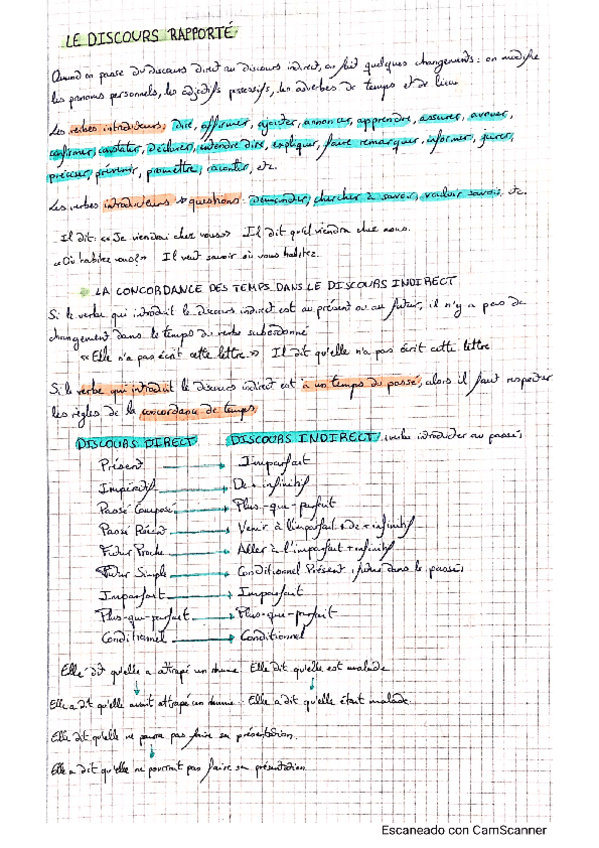 LE DISCOURS RAPPORTÉ
Quand on passe du discours direct au discours indirect, on fait quelques changements : on modifie
les pronoms personnels, les adjectifs possessifs, les adverbes de temps et de lieu
Les verbes introducteurs: dire, affirmer, ajouter, annoncer, apprendre, assurer, avouer,
confirmer, constater, déclarer, entendre dire, expliquer, faire remarquer, informer, jurer,
préciser, prévenir, promettre, raconter, etc.
Les verbes introducteurs → questions: Demander, chercher à savoir, vouloir savoir, etc.
Il dit: «Je viendrai chez vous» Il dit qu'il viendra chez nous.
«Où habitez vous?» Il veut savoir où vous habitez.
LA CONCORDANCE DES TEMPS DANS LE DISCOURS INDIRECT
Si le verbe qui introduit le discours indirect est au présent ou au futur, il n'y a pas de
changement dans le temps du verbe subordonné
«Elle n'a pas écrit cette lettre.» Il dit qu'elle n'a pas écrit cette lettre
Si le verbe qui introduit le discours indirect est à un temps du passé, alors il faut respecter
les règles de la concordance de temps
DISCOURS DIRECT DISCOURS INDIRECT (verbe introducteur au passé)
Présent → Imparfait
Impératif → De + infinitif
Passé Composé → Plus-que-parfait
Passé Récent → Venir à l'imparfait + de + infinitif
Futur Proche → Aller à l'imparfait + infinitif
Futur Simple → Conditionnel Présent (futur dans le passé)
Imparfait → Imparfait
Plus-que-parfait → Plus-que-parfait
Conditionnel → Conditionnel
Elle dit qu'elle a attrapé un rhume Elle dit qu'elle est malade
Elle a dit qu'elle avait attrapé un rhume. Elle a dit qu'elle était malade.
Elle dit qu'elle ne pourra pas faire sa présentation.
Elle a dit qu'elle ne pourrait pas faire sa présentation.
Escaneado con CamScanner